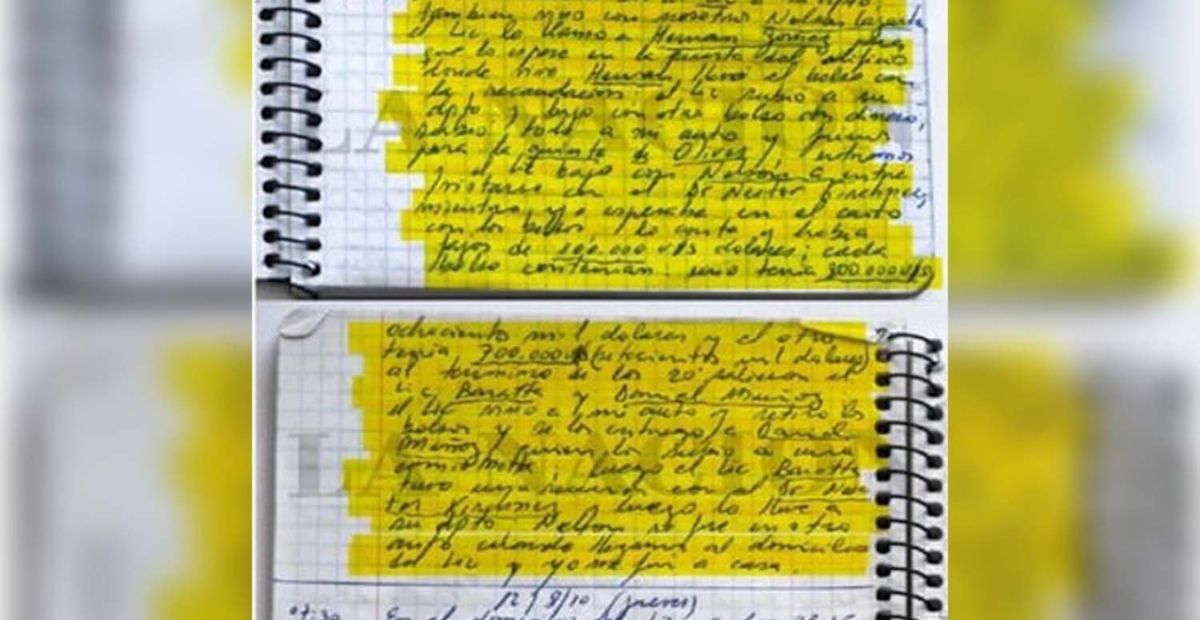 tambien vino con nosotros Nelson Lazarte
el Lic lo llamo a Hernan Gomez
que lo espere en la puerta del edificio
donde vive Hernan, llevo el bolso con
la recaudacion el Lic subio a su
dpto y bajo con otro bolso con dinero,
subio todo a mi auto y fuimos
para la quinta de Olivos, entramos
el Lic bajo con Nelson a
con el Dr Nestor Kirchner,
mientras yo esperaba en el auto
con los bolsos, los y habia
fajos de 100.000 u/s dolares; cada
bolso contenian: uno tenia 800.000 u/s
ochociento mil dolares y el otro
tenia 700.000 u/s (setecientos mil dolares)
al termino de los 20' salieron el
Lic Baratta y Daniel Muñoz
el Lic vino a mi auto y retiro los
bolsos y se los entrego a Daniel
Muñoz quien los subio a una
camioneta; luego el Lic Baratta
tuvo una reunion con el Dr Nes
tor Kirchner luego lo lleve a
su dpto Nelson se fue en otro
auto cuando llegamos al domicilio
del Lic y yo me fui a casa.
12/8/10 (jueves)
07:30 En el domicilio del
LA NACION
LA NACION